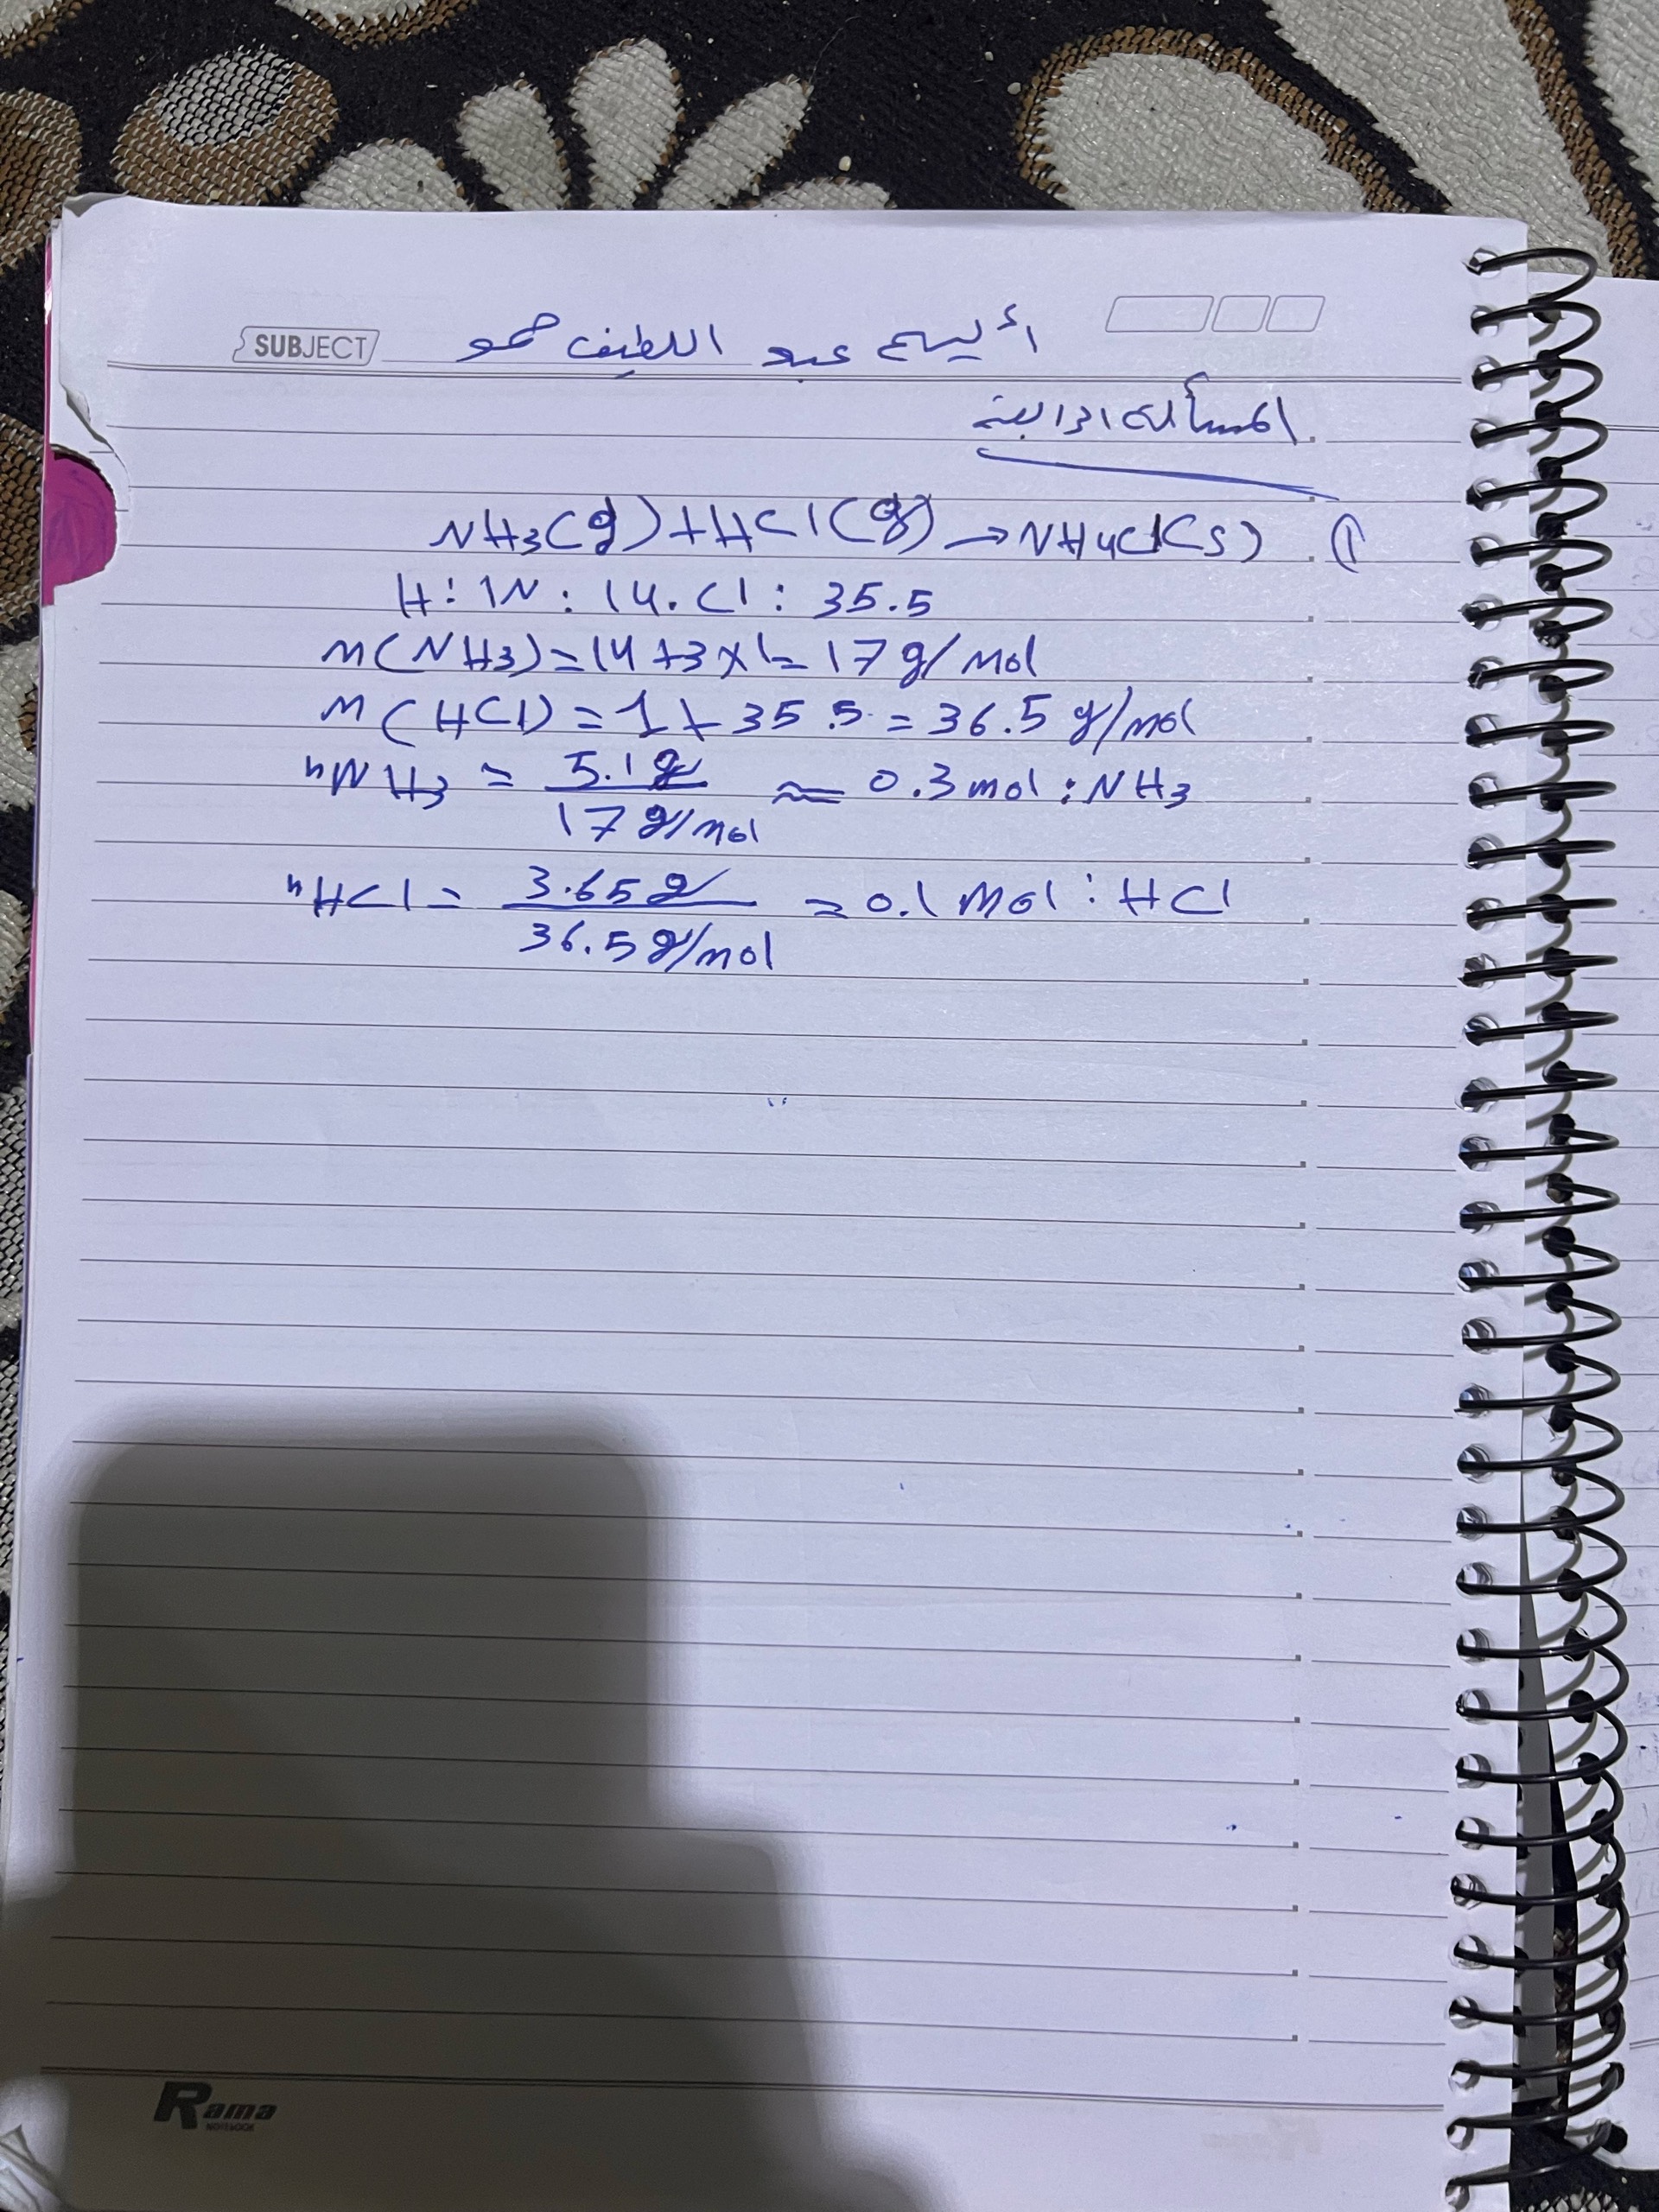 SUBJECT عبد اللطيف حمو
المسألة الرابعة
NH3(g)+HCl(g)→NH4Cl(s) ①
H: 1N: 14. Cl: 35.5
M(NH3)=14+3×1=17g/mol
M(HCl)=1+35.5=36.5g/mol
nNH3 = 5.1g / 17g/mol ≈ 0.3mol: NH3
nHCl = 3.65g / 36.5g/mol = 0.1 mol: HCl
Rama
NOTEBOOK